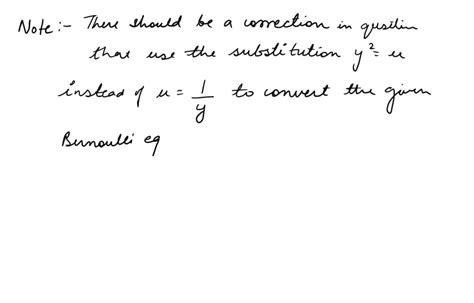 Note :- There should be a correction in question
that use the substitution y² = u
instead of u = 1/y to convert the given
Bernoulli eq